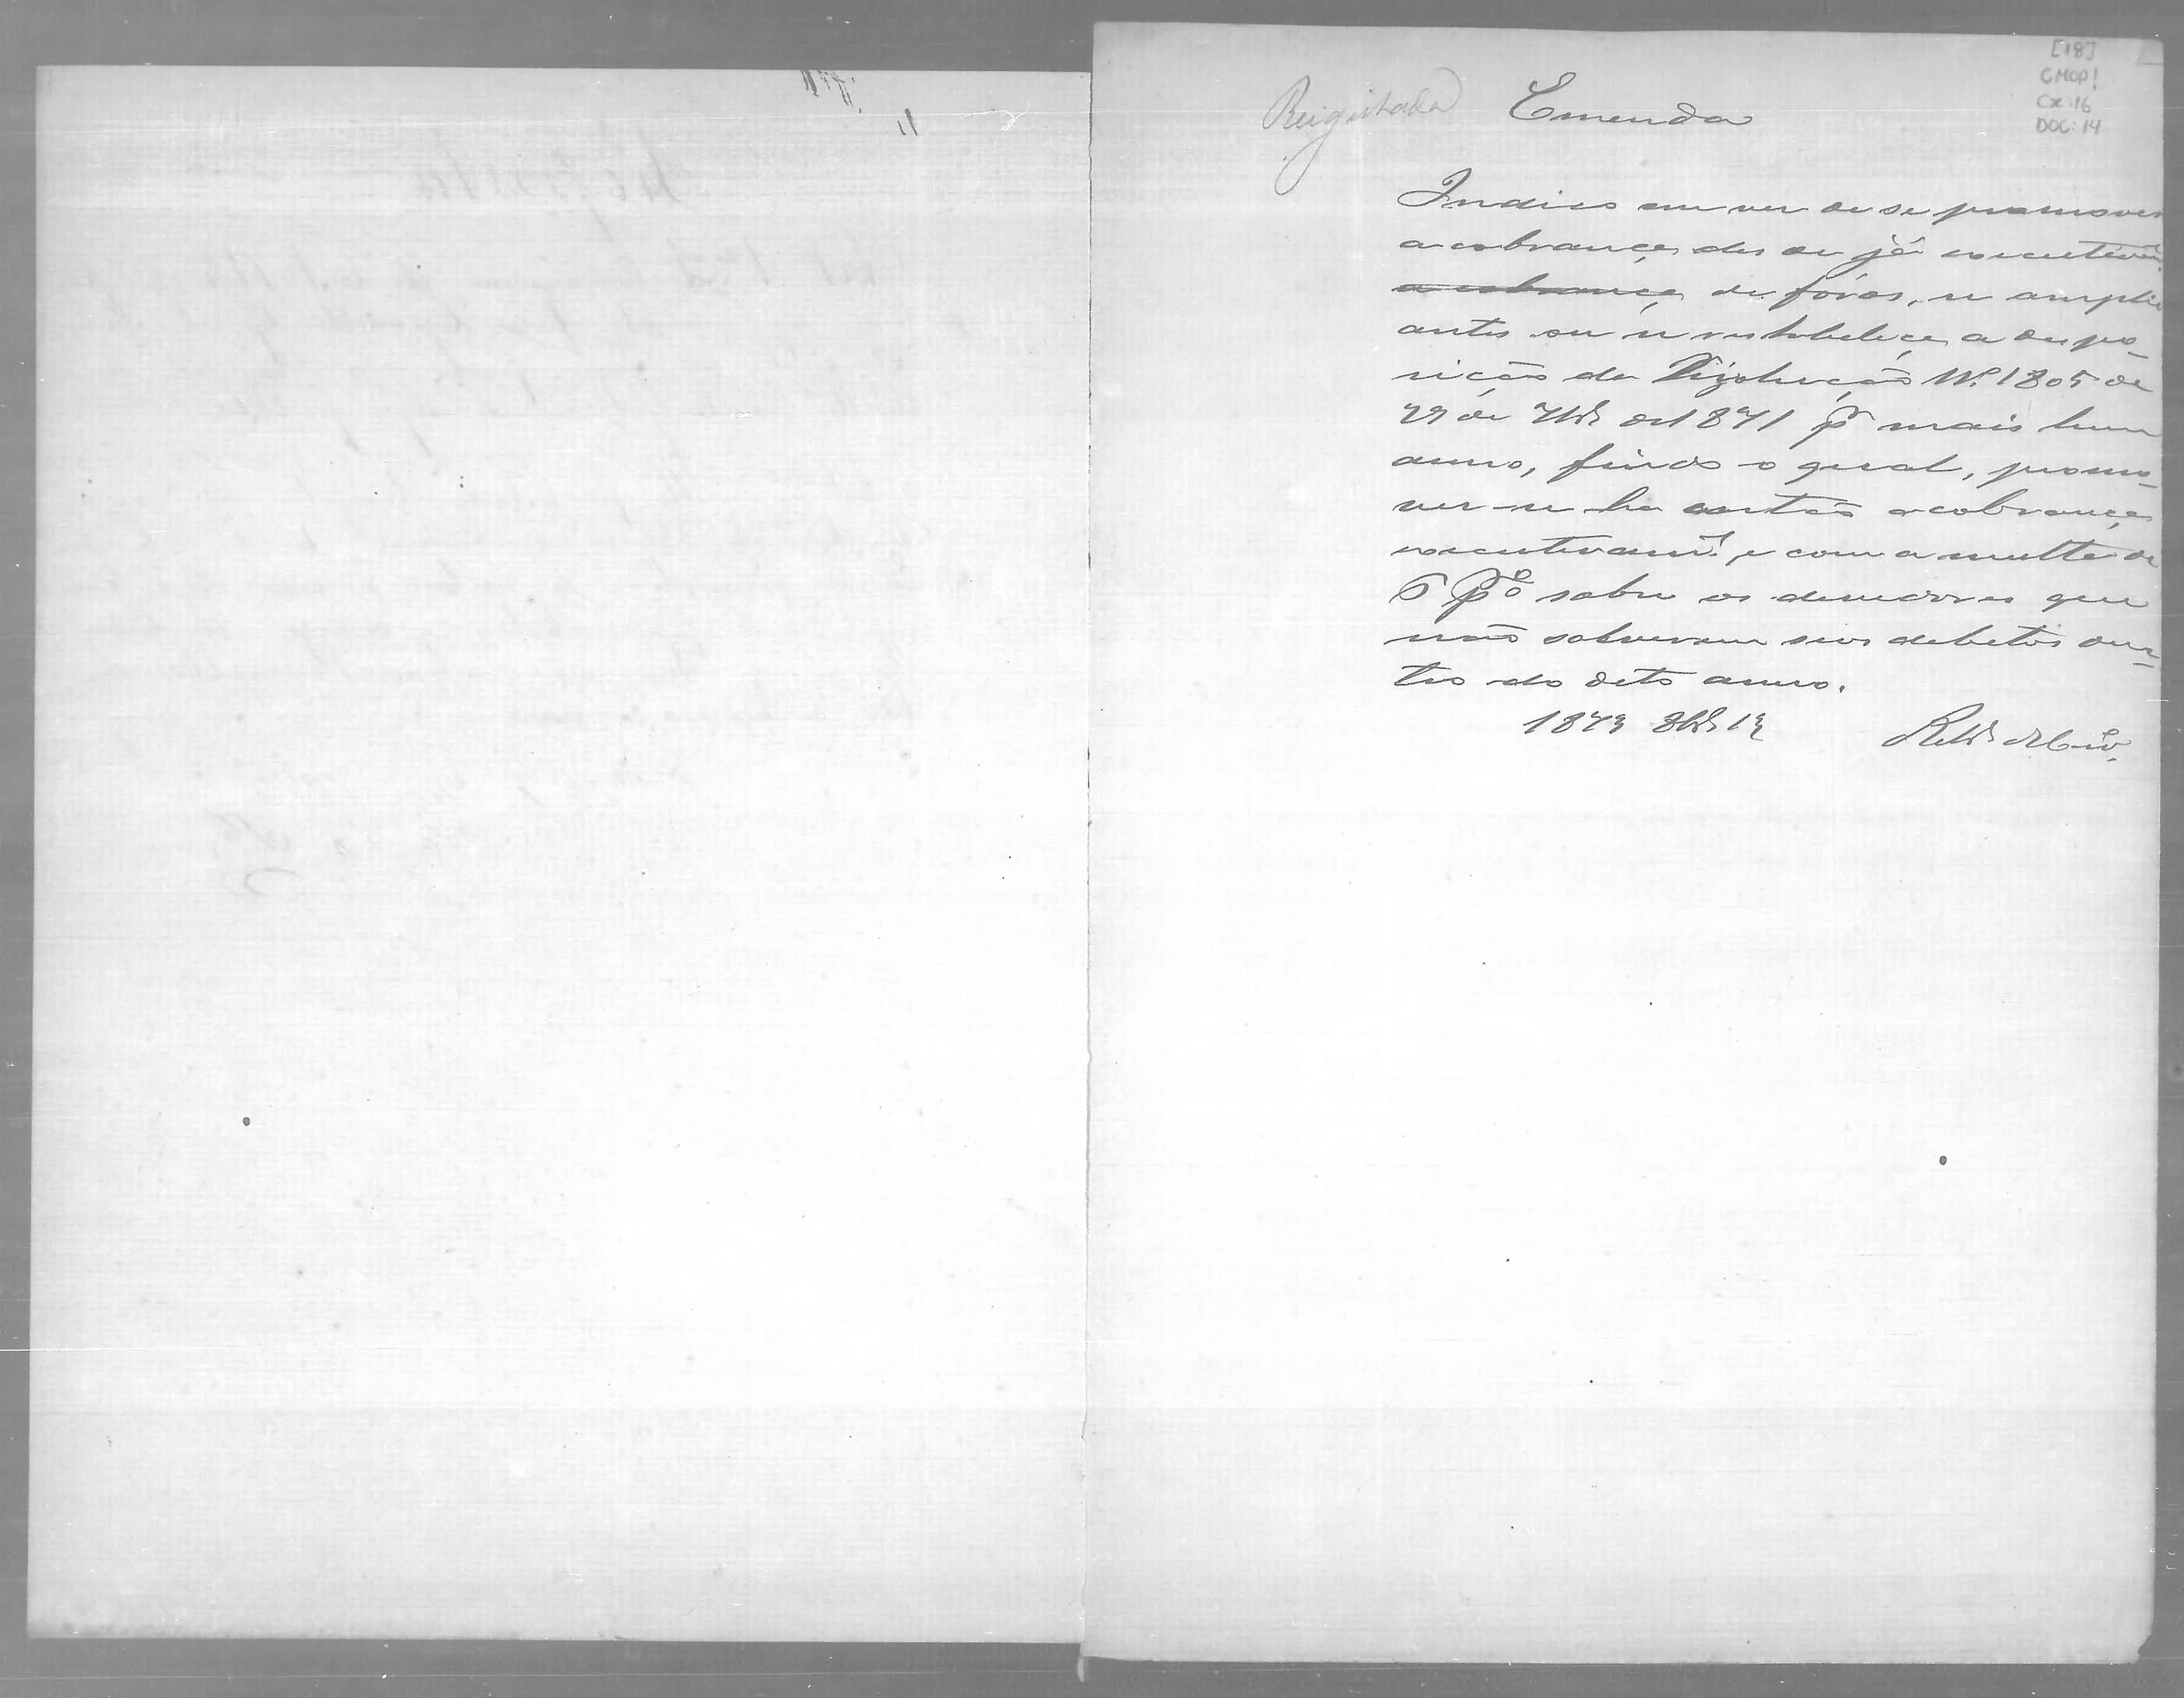 [18]
CMOP!
Cx: 16
DOC: 14
Emenda
Indico em vez de se promover
a cobrança des de já
a cobrança de fóros, se amplie
antes ou se restabeleça a despo-
sição da Rizolução Nº 1805 de
de 7br de 1871 pr mais hum
anno, findo o qual, promo-
ver-se ha então a cobrança
executivamte e com a multa de
6 P% sobre os devedores que
não solverem seos debitos den-
tro do dito anno.
1873 8br 13